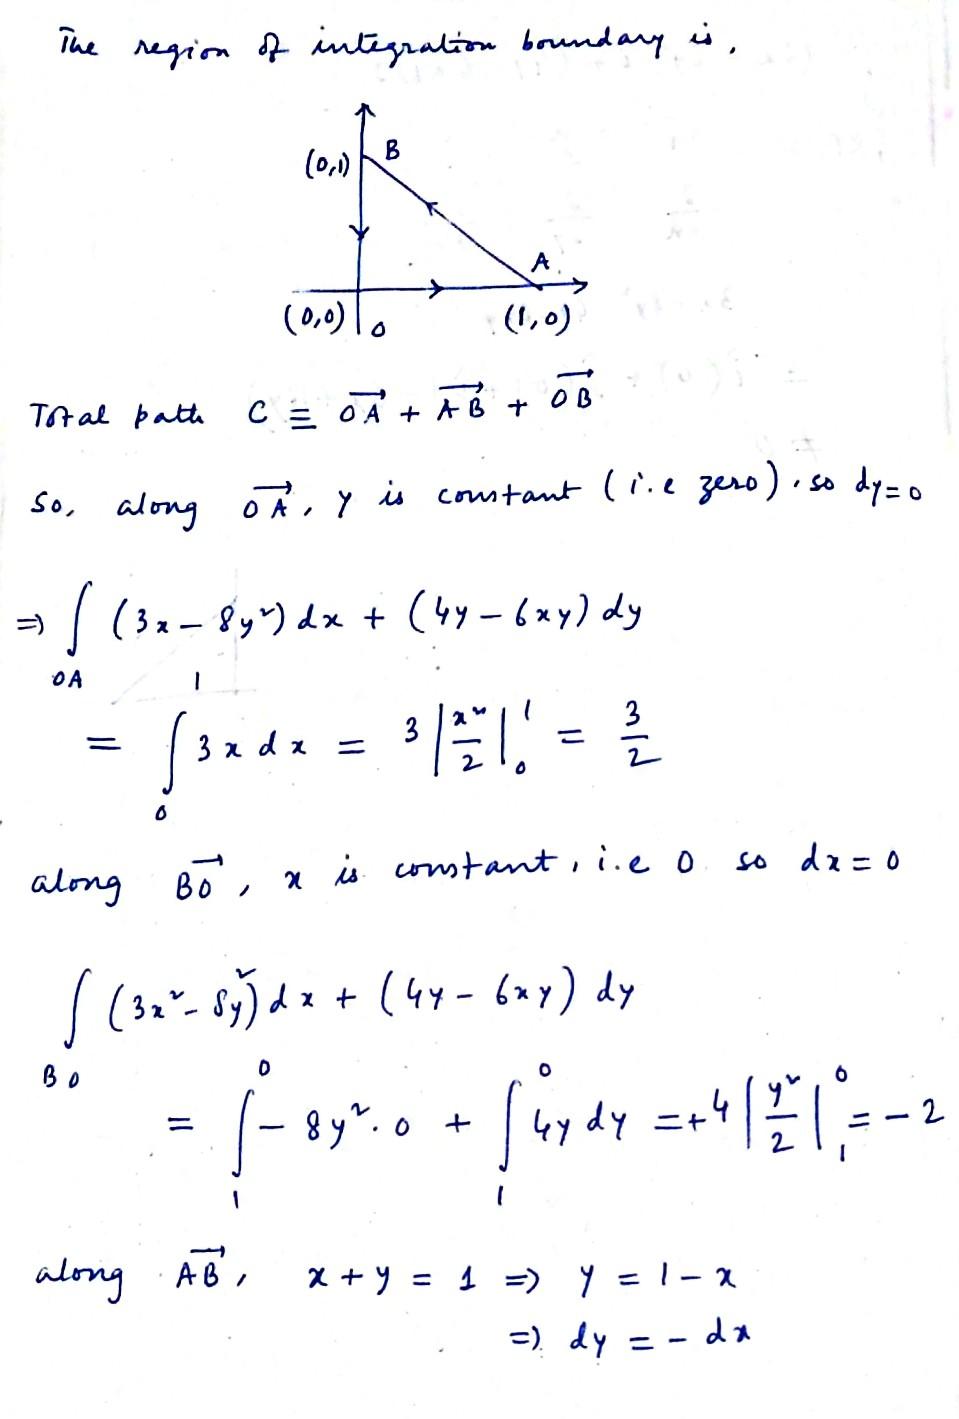 The region of integration boundary is,
(0,1) B
A
(0,0) O (1,0)
Total path C ≡ \overrightarrow{OA} + \overrightarrow{AB} + \overrightarrow{OB}
So, along \overrightarrow{OA}, y is constant (i.e zero), so dy=0
⇒ ∫_{OA} (3x – 8y²) dx + (4y – 6xy) dy
= ∫_0^1 3x dx = 3 |x²/2|_0^1 = 3/2
along \overrightarrow{BO}, x is constant, i.e 0 so dx = 0
∫_{BO} (3x² – 8y²) dx + (4y – 6xy) dy
= ∫_1^0 – 8y².0 + ∫_1^0 4y dy = +4 |y²/2|_1^0 = – 2
along \overrightarrow{AB}, x + y = 1 ⇒ y = 1 – x
⇒ dy = – dx